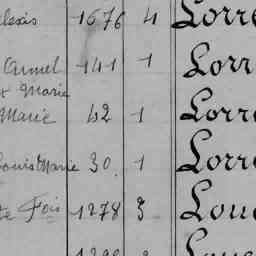 1676 4 Lorre
Armel 141 1 Lorr
& Marie
Marie 42 1 Lorr
Louis Marie 30 1 Lorre
Fois 1278 3 Lou